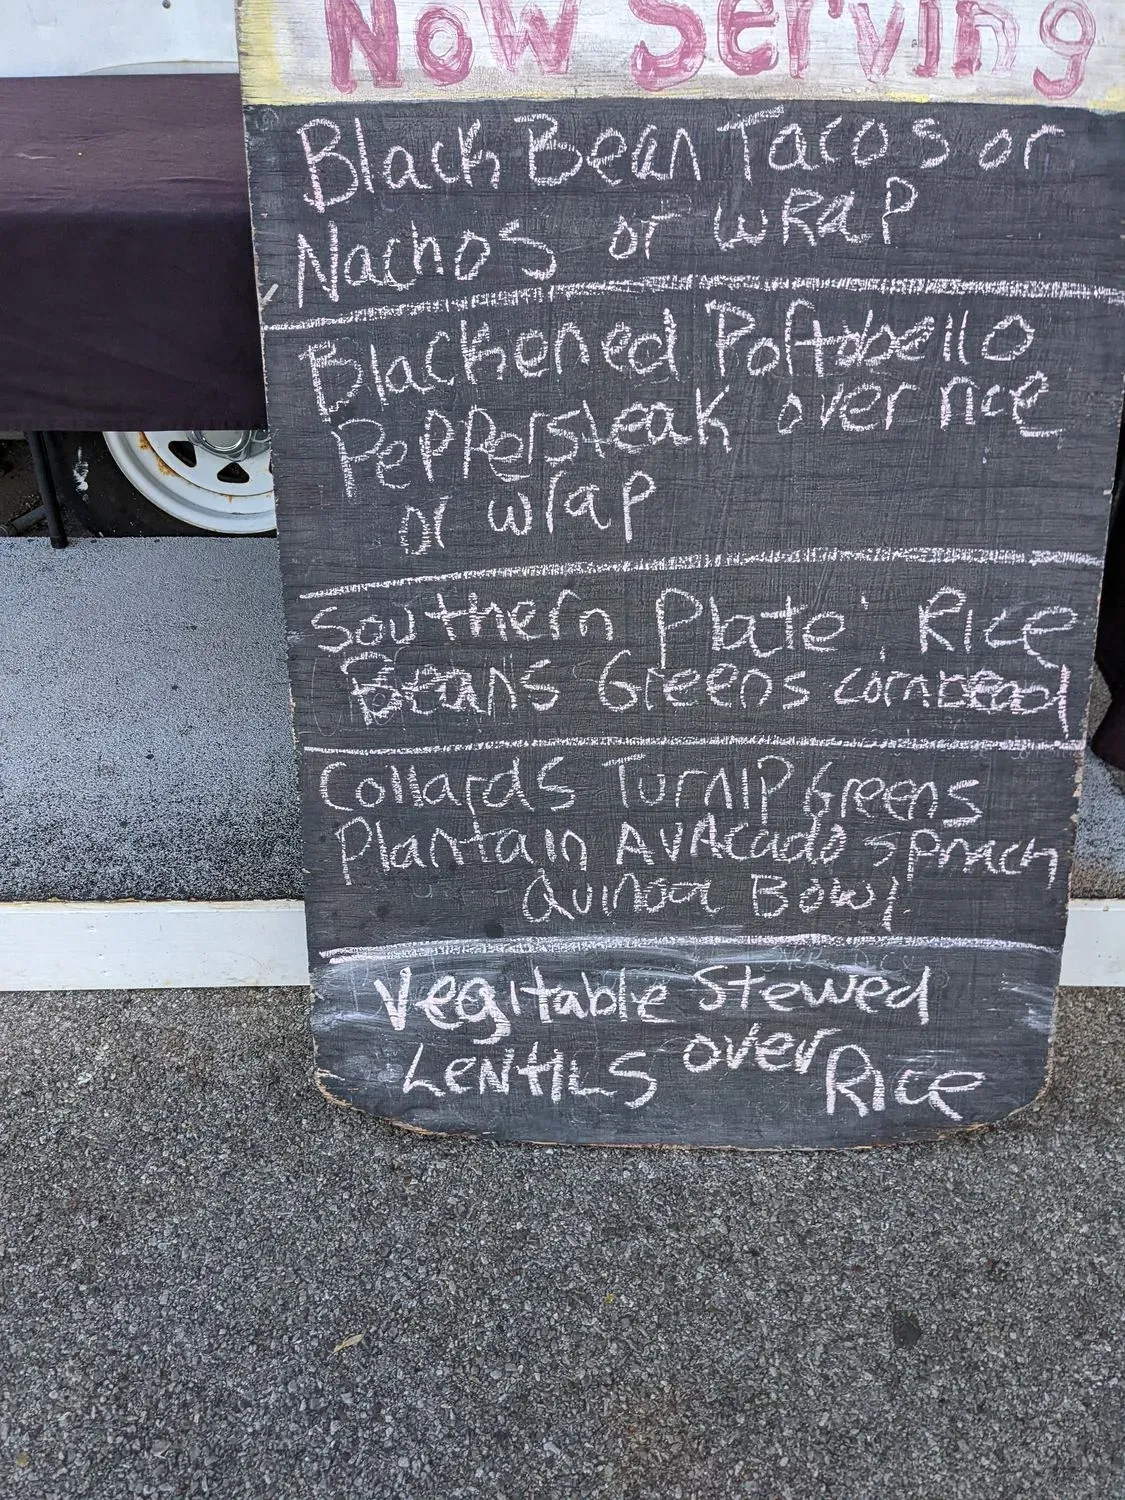 Now Serving
Black Bean Tacos or
Nachos or WRaP
Blackened Portabello
Peppersteak over rice
or wrap
Southern Plate: Rice
Beans Greens cornbread
Collards Turnip Greens
Plantain AvAcado spinach
Quinoa Bowl
Vegitable Stewed
LENtILS over Rice